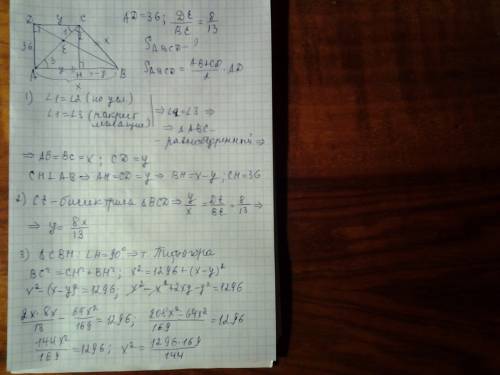 D y C
36
E
1 2
x
3
A y H x-y B
x
AD=36; DE/BE = 8/13
S ABCD - ?
S ABCD = (AB+CD)/2 · AD
1) ∠1=∠2 (по усл)
∠1=∠3 (накрест лежащие)
⇒ ∠2=∠3 ⇒
⇒ Δ ABC -
равнобедренный ⇒
⇒ AB=BC=x; CD=y
CH⊥AB ⇒ AH=CD=y ⇒ BH=x-y; CH=36
2) CE - биссектриса ΔBCD ⇒ y/x = DE/BE = 8/13 ⇒
⇒ y = 8x/13
3) ΔCBH: ∠H=90° ⇒ т Пифагора
BC²=CH²+BH²; x²=1296+(x-y)²
x²-(x-y)²=1296; x²-x²+2xy-y²=1296
2x·8x/13 - 64x²/169 = 1296; (208x²-64x²)/169 = 1296
144x²/169 = 1296; x² = 1296·169/144